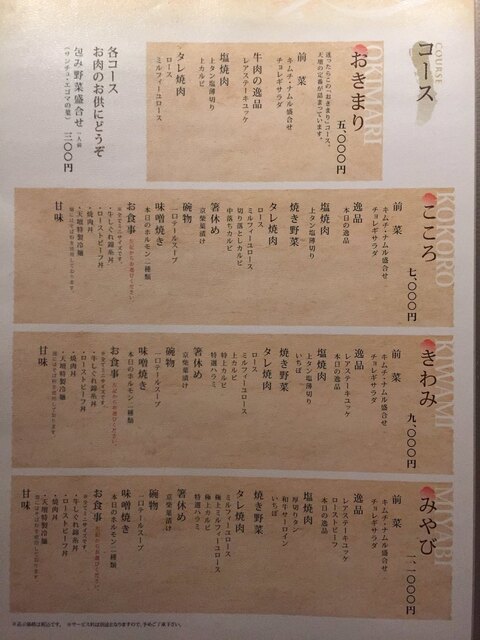 COURSE
コース
OKIMARI
おきまり
五、〇〇〇円
迷ったらこの「おきまり」コース。
天壇の定番が詰まっています。
前菜
キムチ・ナムル盛合せ
チョレギサラダ
牛肉の逸品
レアステーキユッケ
塩焼肉
上タン塩薄切り
上カルビ
タレ焼肉
ロース
ミルフィーユロース
各コース
お肉のお供にどうぞ
包み野菜盛合せ 一人前 三〇〇円
（サンチュ・エゴマの葉）
KOKORO
こころ
七、〇〇〇円
前菜
キムチ・ナムル盛合せ
チョレギサラダ
逸品
本日の逸品
塩焼肉
上タン塩薄切り
焼き野菜
タレ焼肉
ロース
ミルフィーユロース
切り落としカルビ
中落ちカルビ
箸休め
京柴葉漬け
碗物
一口テールスープ
味噌焼き
本日のホルモン二種類
お食事
※全てミニサイズです。
左記からお選びください。
・牛しぐれ錦糸丼
・ローストビーフ丼
・焼肉丼
・天壇特製冷麺
甘味
KIWAMI
きわみ
九、〇〇〇円
前菜
キムチ・ナムル盛合せ
チョレギサラダ
逸品
レアステーキユッケ
本日の逸品
塩焼肉
上タン塩薄切り
いちぼ
焼き野菜
タレ焼肉
ロース
ミルフィーユロース
上カルビ
特上カルビ
特選ハラミ
箸休め
京柴葉漬け
碗物
一口テールスープ
味噌焼き
本日のホルモン二種類
お食事
※全てミニサイズです。
左記からお選びください。
・牛しぐれ錦糸丼
・ローストビーフ丼
・焼肉丼
・天壇特製冷麺
甘味
MIYABI
みやび
一一、〇〇〇円
前菜
キムチ・ナムル盛合せ
チョレギサラダ
逸品
レアステーキユッケ
ローストビーフ
本日の逸品
塩焼肉
厚切りタン
和牛サーロイン
いちぼ
焼き野菜
タレ焼肉
ミルフィーユロース
極上ミルフィーユロース
極上カルビ
特選ハラミ
箸休め
京柴葉漬け
碗物
一口テールスープ
味噌焼き
本日のホルモン二種類
お食事
※全てミニサイズです。
左記からお選びください。
・牛しぐれ錦糸丼
・ローストビーフ丼
・焼肉丼
・天壇特製冷麺
甘味
※表示価格は税込です。 ※サービス料は別途となりますので、予めご了承下さい。